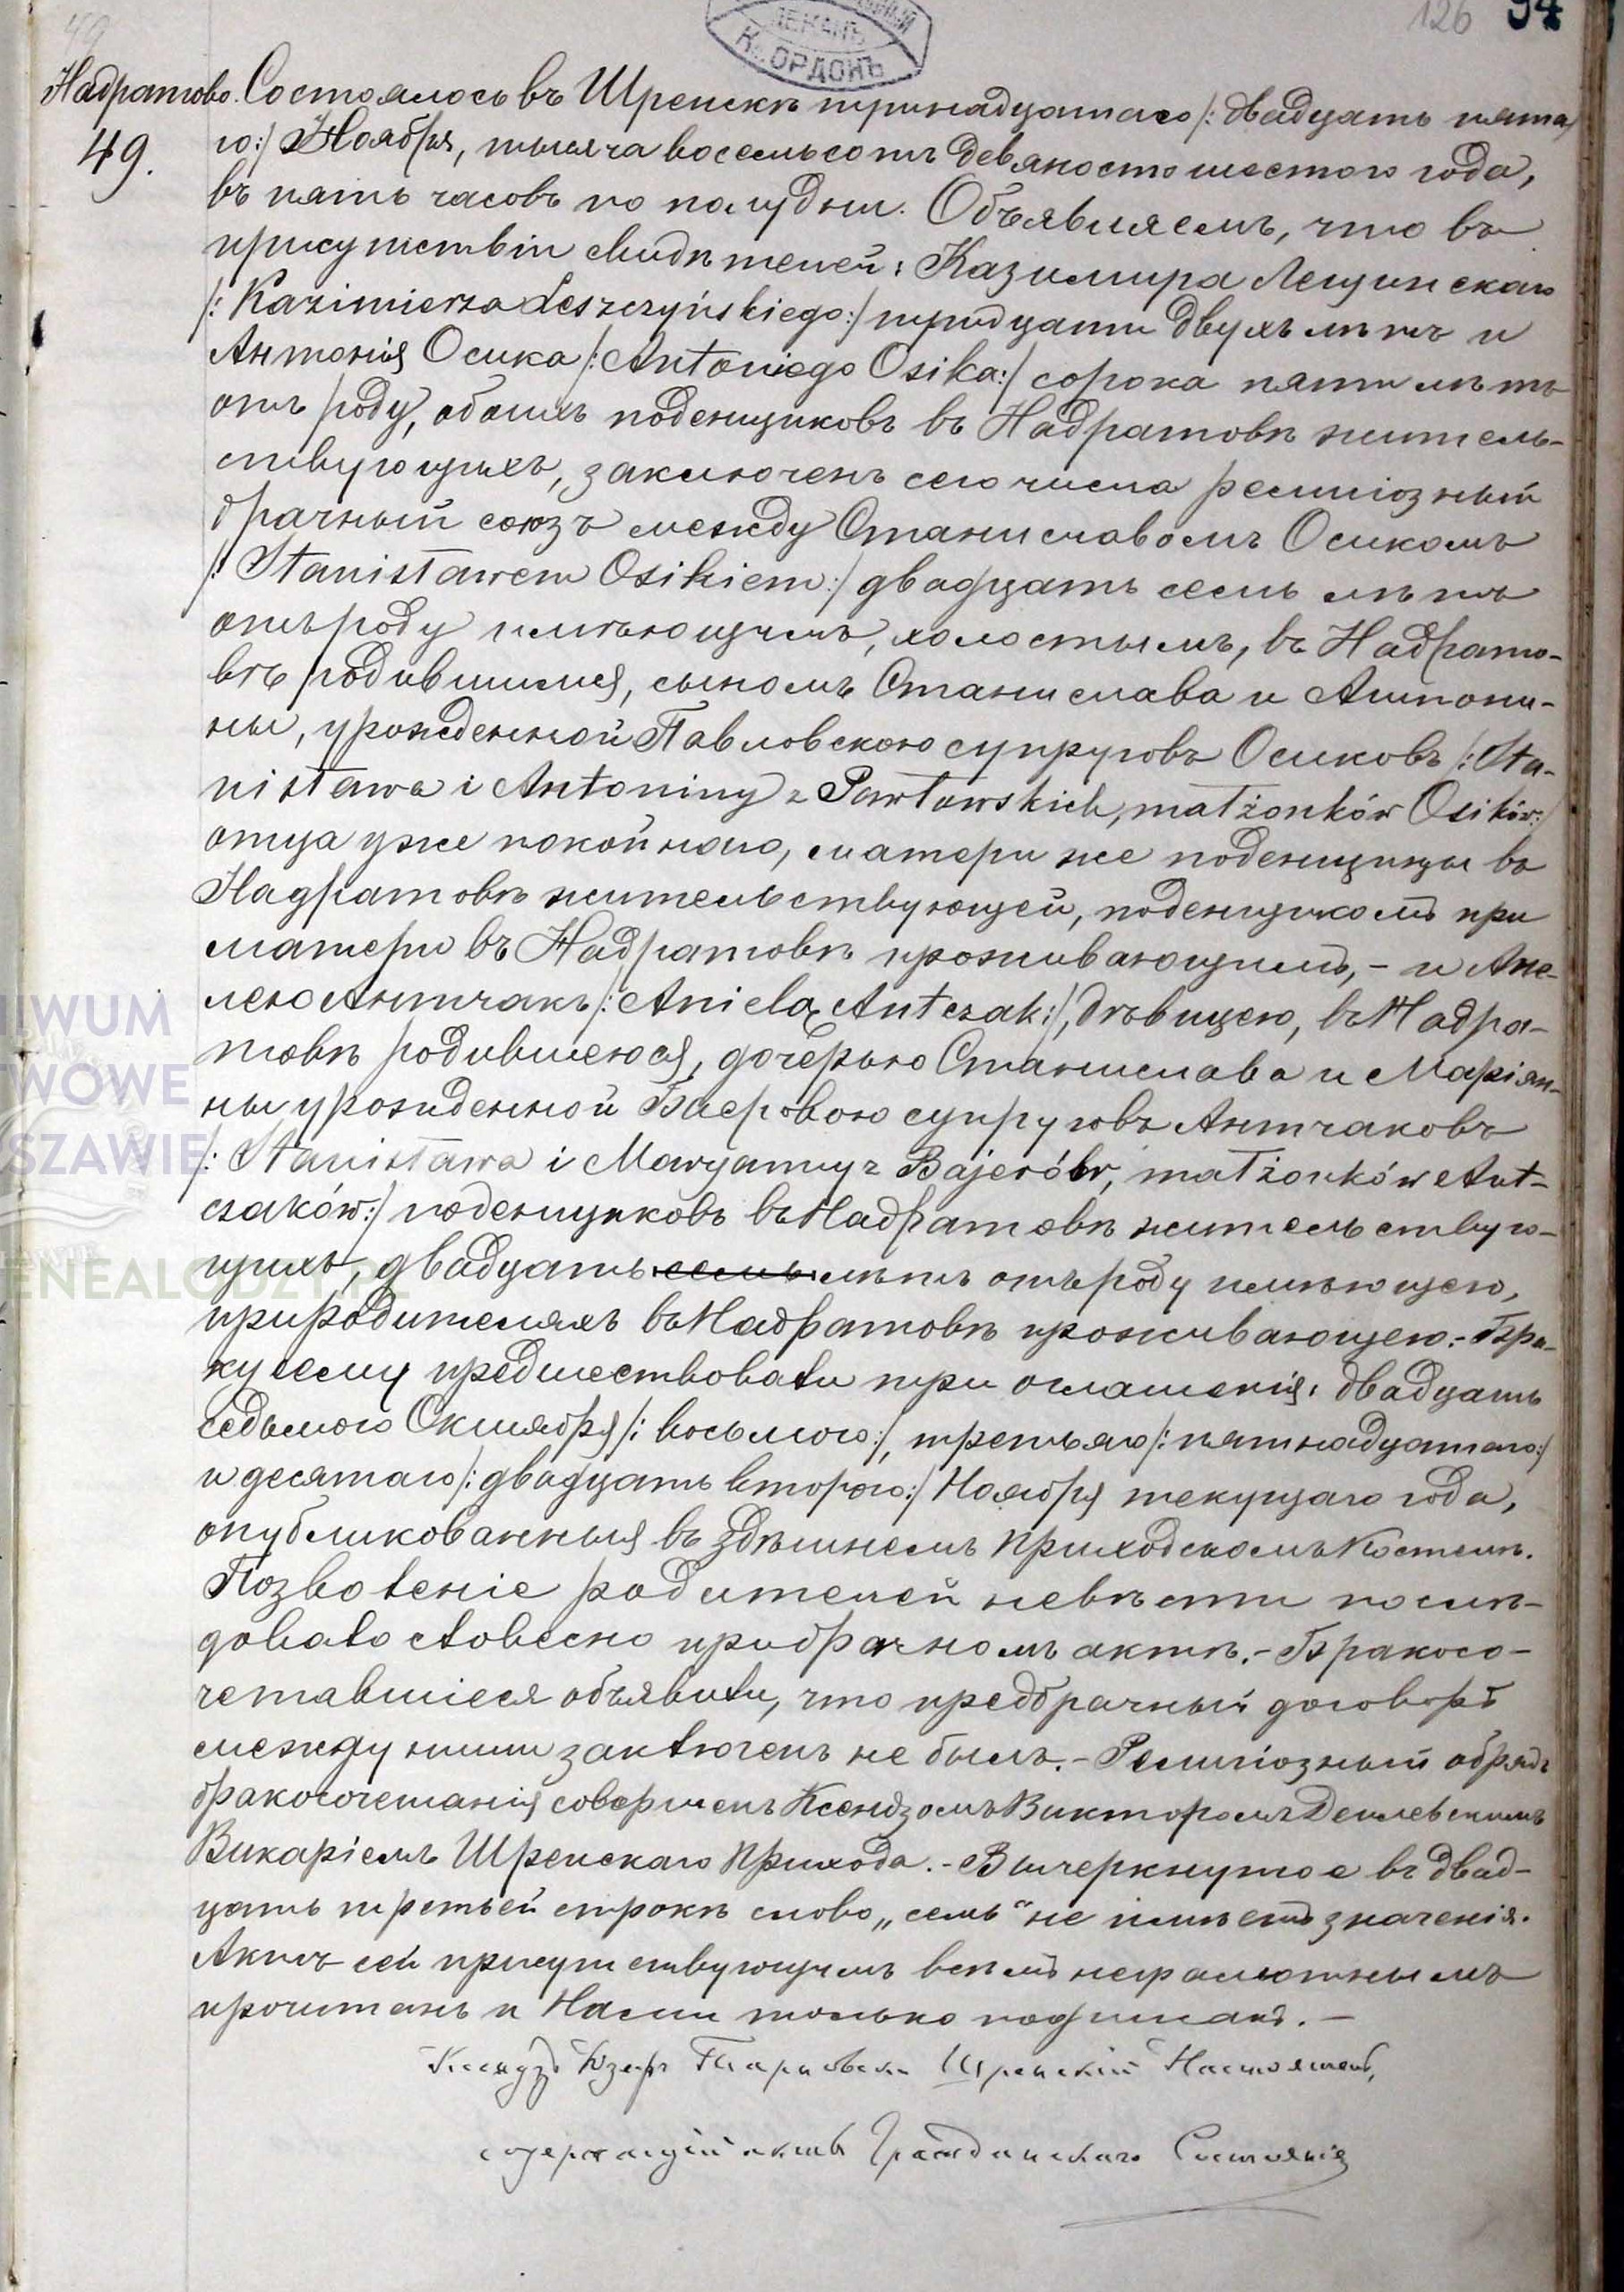 126 94
49
Надратово.
49.
Состоялось въ Шренскѣ тринадцатаго /: двадцать пята-
го:/ Ноября, тысяча восемьсотъ девяносто шестого года,
въ пять часовъ по полудни. Объявляемъ, что въ
присутствіи свидѣтелей: Казимира Лещинскаго
/: Kazimierza Leszczyńskiego:/ тридцати двухъ лѣтъ и
Антонія Осика /: Antoniego Osika:/ сорока пяти лѣтъ
отъ роду, обоихъ поденщиковъ въ Надратовѣ житель-
ствующихъ, заключенъ сего числа религіозный
брачный союзъ между Станиславомъ Осикомъ
/: Stanisławem Osikiem:/ двадцать семь лѣтъ
отъ роду имѣющимъ, холостымъ, въ Надрато-
вѣ родившимся, сыномъ Станислава и Антони-
ны, урожденной Павловскою супруговъ Осиковъ /: Sta-
nisława i Antoniny z Pawłowskich, małżonków Osików:/
отца уже покойнаго, матери же поденщицы въ
Надратовѣ жительствующей, поденщикомъ при
матери въ Надратовѣ проживающимъ, - и Ане-
лею Антчакъ /: Anielą Antczak:/, дѣвицею, въ Надра-
товѣ родившеюся, дочерью Станислава и Маріян-
ны урожденной Баеровою супруговъ Антчаковъ
/: Stanisława i Maryanny z Bajerów, małżonków Ant-
czaków:/ поденщиковъ въ Надратовѣ жительствую-
щихъ, двадцать семь лѣтъ отъ роду имѣющею,
при родителяхъ въ Надратовѣ проживающею. - Бра-
ку сему предшествовали три оглашенія: двадцать
седьмого Октября /: восьмого:/, третьяго /: пятнадцатаго:/
и десятаго /: двадцать второго:/ Ноября текущаго года,
опубликованныя въ здѣшнемъ приходскомъ Костелѣ.
Позволеніе родителей невѣсты послѣ-
довало словесно при брачномъ актѣ. - Бракосо-
четавшіеся объявили, что предбрачный договоръ
между ними заключенъ не былъ. - Религіозный обрядъ
бракосочетанія совершенъ Ксендзомъ Викторомъ
Викаріемъ Шренскаго прихода. - Вычеркнутое въ двад-
цать третьей строкѣ слово „семь“ не имѣетъ значенія.
Актъ сей присутствующимъ всѣмъ неграмотнымъ
прочитанъ и Нами только подписанъ. -
Ксендзъ Юзефъ Шренскій Настоятель,
содержащій акты Гражданскаго Состоянія
WUM
WOWE
SZAWIE
ENEALODZY.PL